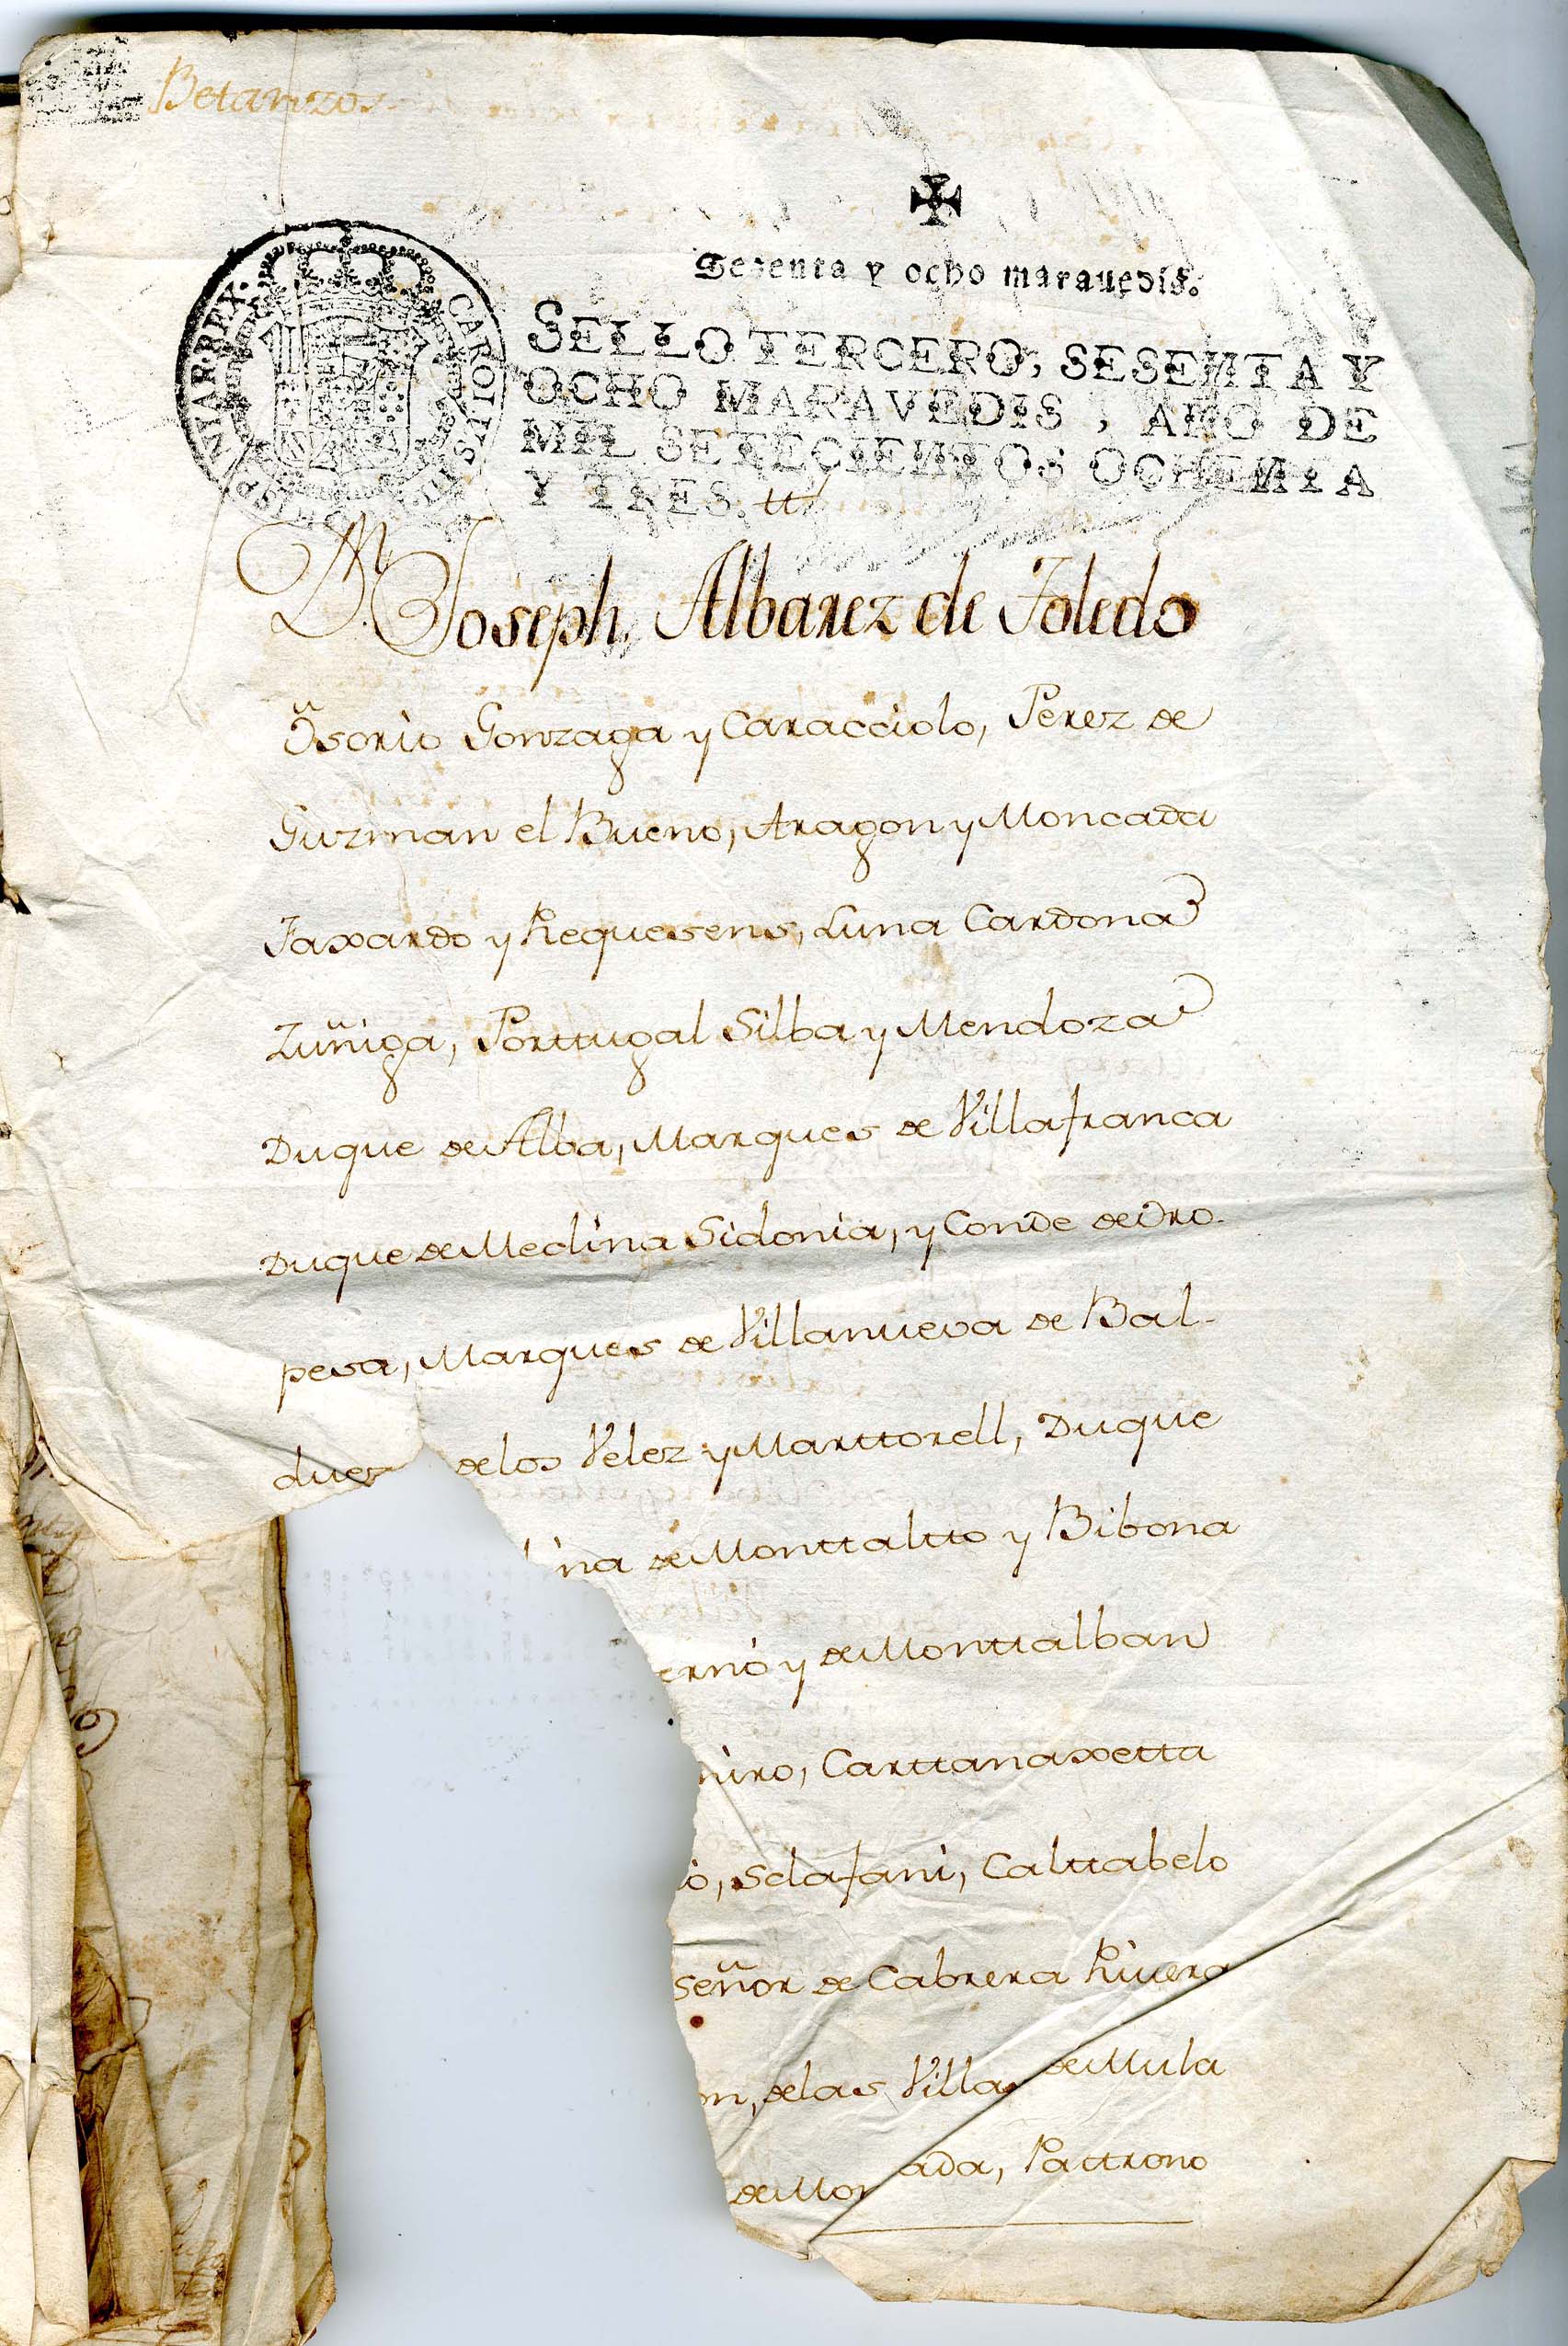 Betanzos
Sesenta y ocho maravedis.
SELLO TERCERO, SESENTA Y
OCHO MARAVEDIS, AÑO DE
MIL SETECIENTOS OCHENTA
Y TRES.
CAROLUS III D G HISPANIAR REX
Dn. Joseph Albarez de Toledo
Osorio Gonzaga y Caracciolo, Perez de
Guzman el Bueno, Aragon y Moncada
Faxardo y Requesens, Luna Cardona
Zuñiga, Porttugal Silba y Mendoza
Duque de Alba, Marques de Villafranca
Duque de Medina Sidonia, y Conde de Oro-
pesa, Marques de Villanueva de Bal-
duez delos Velez y Marttorell, Duque
ina de Monttaltto y Bibona
erno y de Monttalban
niro, Carttanaxetta
io, Sclafani, Calttabelo
señor de Cabrera Rivera
on, delas Villas de Mula
de Mon ada, Pattrono